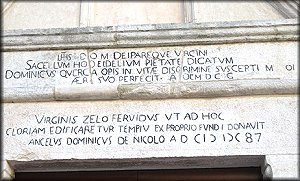 D O M DEIPAREQUE VIRGINI
SACELLUM HOC FIDELIUM PIETATE DICATUM
DOMINICUS QUERCIA OPIS IN VITÆ DISCRIMINE SUSCEPTI
ÆR SVO PERFECIT A D M D C G
VIRGINIS ZELO FERVIDUS VT AD HOC
GLORIAM EDIFICARETUR TEMPLV EX PROPRIO FUNDI DONAVIT
ANGELUS DOMINICUS DE NICOLO A D CIƆ IƆC 87